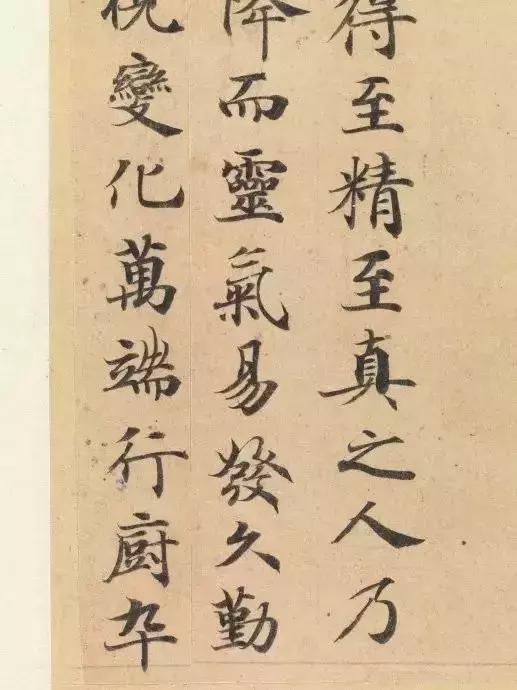 得至精至真之人乃
降而靈氣易發久勤
變化萬端行厨卒